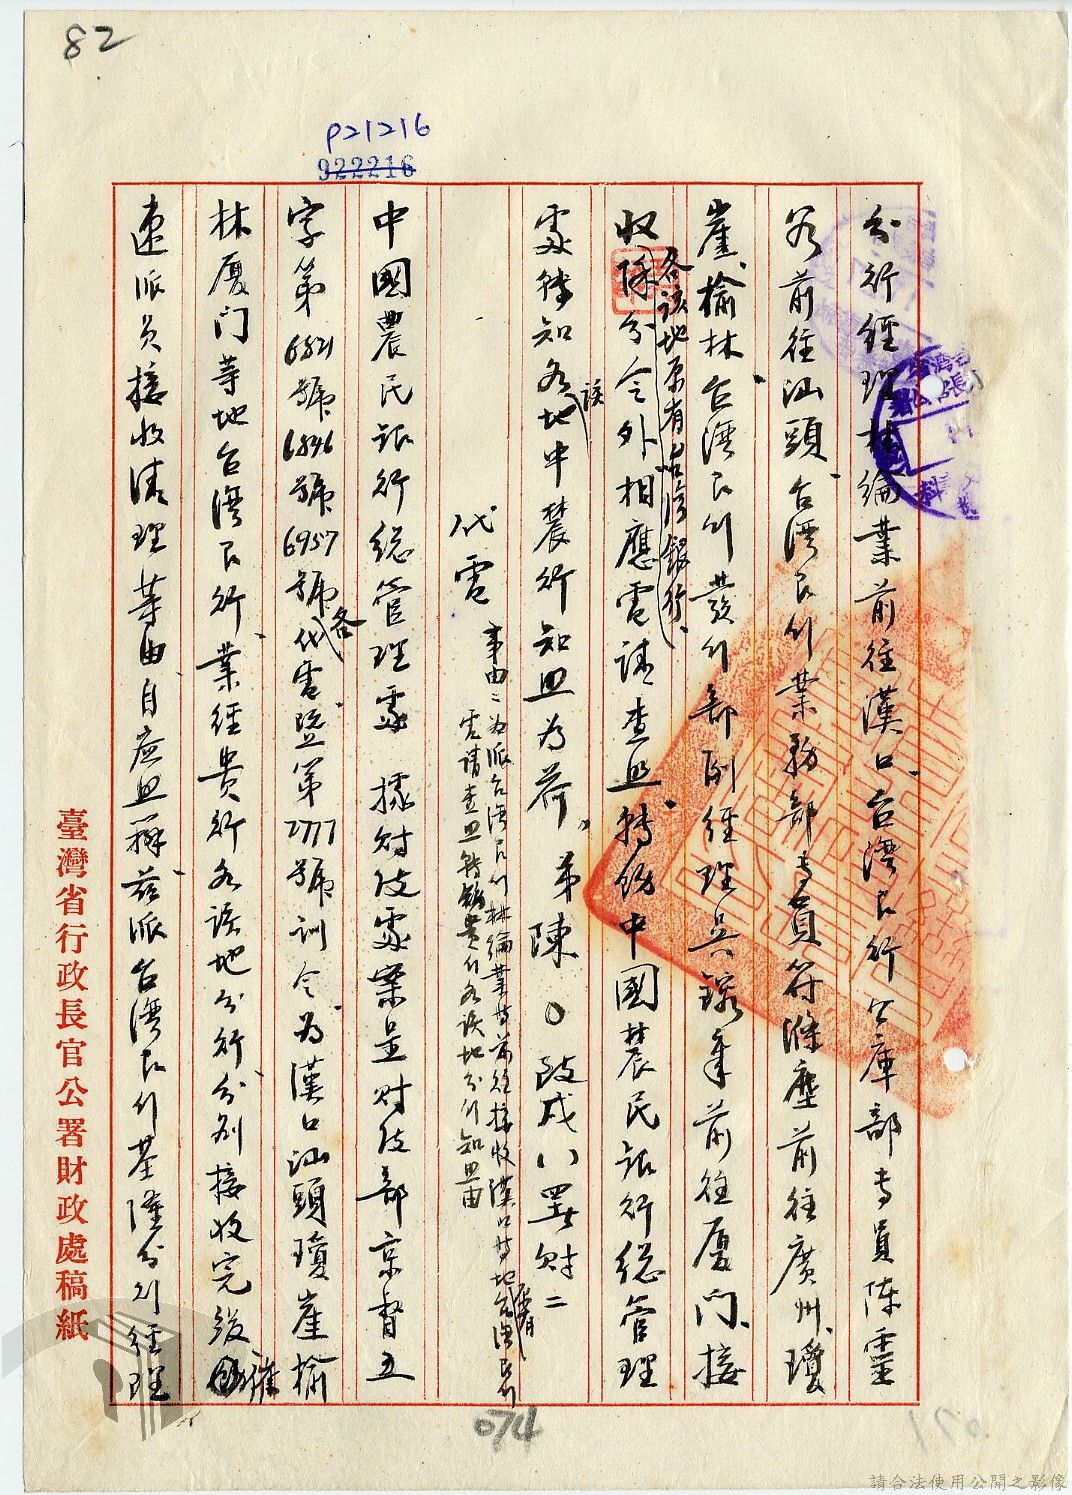 82
P21216
922216
分行經理林綸業前往漢口、台灣銀行公庫部專員陳靈
前往汕頭、台灣銀行業務部專員符滌塵前往廣州、瓊
崖、榆林、台灣銀行發行部副經理吳鏡 前往廈門、接
收各該地原有台灣銀行、
除分令外相應電請查照轉飭中國農民銀行總管理
處轉知各該地中農行知照為荷、弟陳○ 戌 署財二
代電
事由：為派台灣銀行林綸業等前往接收漢口等地原有台灣銀行
電請查照轉飭貴行各該地分行知照由
中國農民銀行總管理處 據財政處案呈財政部京督五
字第6821號6846號6957號各代電暨第2777號訓令、為漢口汕頭瓊崖榆
林廈门等地台灣銀行、業經貴行各該地分行、分別接收完竣 催
速派員接收清理等由自應照辦、茲派台灣銀行基隆分行經理
臺灣省行政長官公署財政處稿紙
074
請合法使用公開之影像